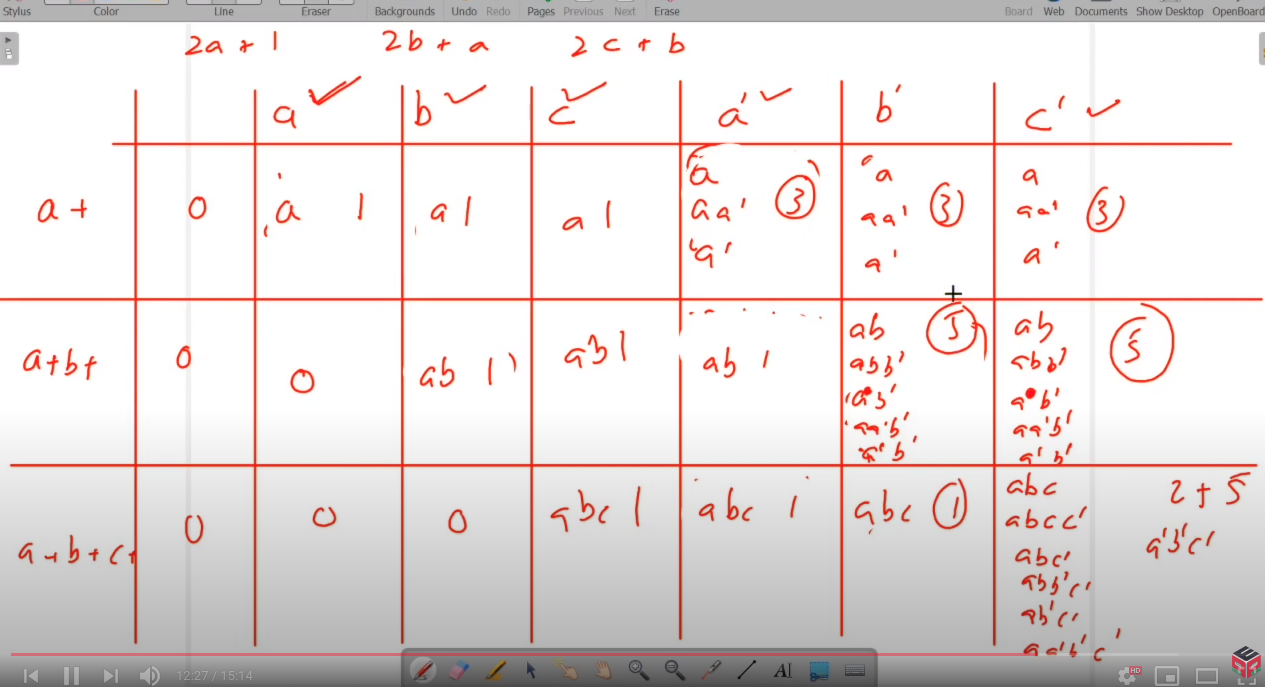 Stylus Color Line Eraser Backgrounds Undo Redo Pages Previous Next Erase Board Web Documents Show Desktop OpenBoard
2a + 1 2b + a 2c + b
a b c a' b' c'
a+ 0 a 1 a 1 a 1 a a a
aa' 3 aa' 3 aa' 3
a' a' a'
a+b+ 0 0 ab 1 ab 1 ab 1 ab 5 ab 5
abb' abb'
ab' ab'
aa'b' aa'b'
a'b' a'b'
a+b+c+ 0 0 0 abc 1 abc 1 abc 1 abc 2 + 5
abcc' a'b'c'
abc'
abb'c'
ab'c'
aa'b'c'
12:27 / 15:14
HD